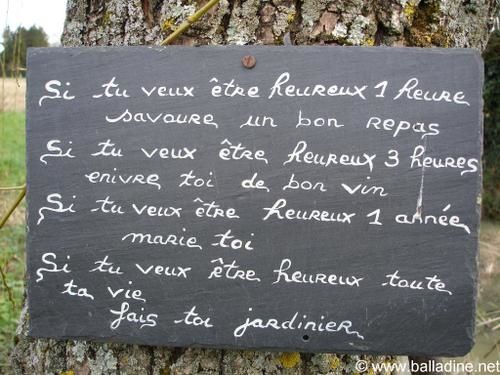 Si tu veux être heureux 1 heure
savoure un bon repas
Si tu veux être heureux 3 heures
enivre toi de bon vin
Si tu veux être heureux 1 année
marie toi
Si tu veux être heureux toute
ta vie
fais toi jardinier
© www.balladine.net